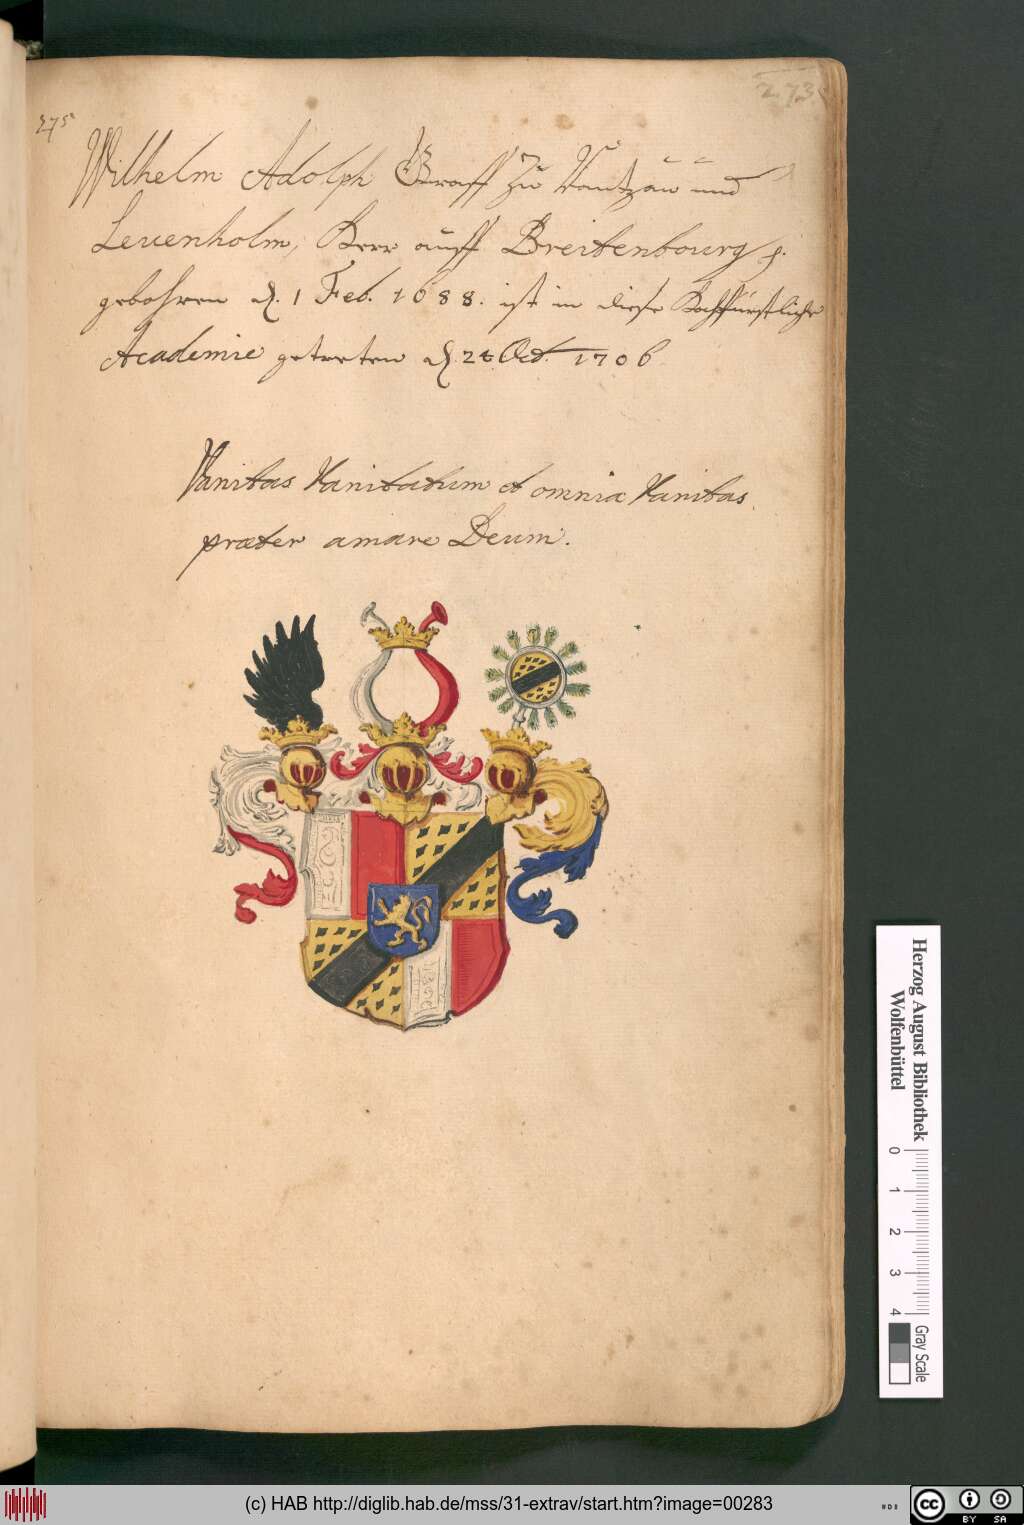 273
275
Wilhelm Adolph Graff zu Rantzau und
Leuenholm, Herr auff Breitenbourg p.
gebohren d. 1 Feb. 1688. ist in diese Hochfürstliche
Academie getreten d 28 Oct. 1706
Vanitas Vanitatum et omnia Vanitas
præter amare Deum.
Herzog August Bibliothek
Wolfenbüttel
0 1 2 3 4
Gray Scale
(c) HAB http://diglib.hab.de/mss/31-extrav/start.htm?image=00283
cc BY SA